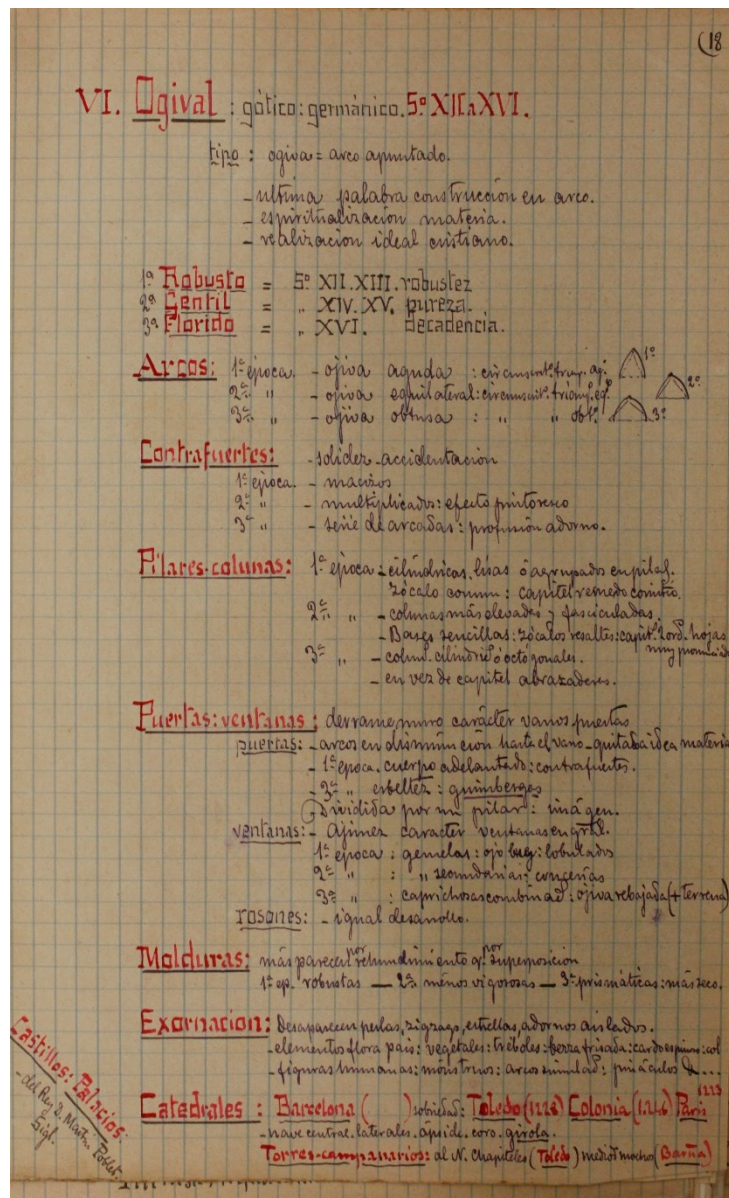 (18
VI. Ogival : gótico: germánico. Sº XII a XVI.
tipo : ogiva = arco apuntado.
- ultima palabra construccion en arco.
- espiritualizacion materia.
- realizacion ideal cristiano.
1º Robusto = Sº XII. XIII. robustez
2º Gentil = " XIV. XV. pureza.
3º Florido = " XVI. decadencia.
Arcos: 1ª época. - ojiva aguda : circunscrit. triang. ag. 1º
2ª " - ojiva equilateral: circunscritº. triáng. eqº. 2º
3ª " - ojiva obtusa : " " obtº. 3º
Contrafuertes: - solidez - accidentación
1ª época. - macizos
2ª " - multiplicados: efecto pintoresco
3ª " - serie de arcadas: profusión adorno.
Pilares-colunas: 1ª época: cilíndricas, lisas ó agrupados en pilas.
zócalo comun: capitel remedo corintio.
2ª " - colunas más elevadas y fasciculadas.
- Bases sencillas: zócalos resaltes: capitº. 2 ord. hojas
muy pronunciado
3ª " - colum. cilindric ó octógonales.
- en vez de capitel abrazaderas.
Puertas: ventanas: derrame muro carácter vanos puertas
puertas: - arcos en disminución hasta el vano - quitaba idea materia
- 1ª época. cuerpo adelantado: contrafuertes.
- 3ª " esbeltez : guimberges
Dividida por un pilar: imágen.
ventanas: - Ajimez caracter ventanas en gral.
1ª época : gemelas: ojo buey: lobulados
2ª " : " secundarias:
3ª " : caprichosas combinad: ojiva rebajada (+ terrena)
rosones: - igual desarrollo.
Molduras: más parecen por rehundimiento q. por superposicion
1ª ep. robustas — 2ª menos vigorosas — 3ª prismáticas: más seco.
Exornacion: Desaparecen perlas, zigzags, estrellas, adornos aislados.
- elementos flora pais: vegetales: tréboles: berza frisada: cardo espino: col
- figuras humanas: mónstruos: arcos simulad: pináculos & ...
Castillos: Palacios:
- del Rey D. Martin Poblet.
Sigl.
Catedrales : Barcelona ( ) sobriedad: Toledo (1226) Colonia (1246) París 1223
- nave central. laterales. ápside. coro. girola.
Torres-campanarios: al N. Chapiteles (Toledo) medios mochos (Barña)